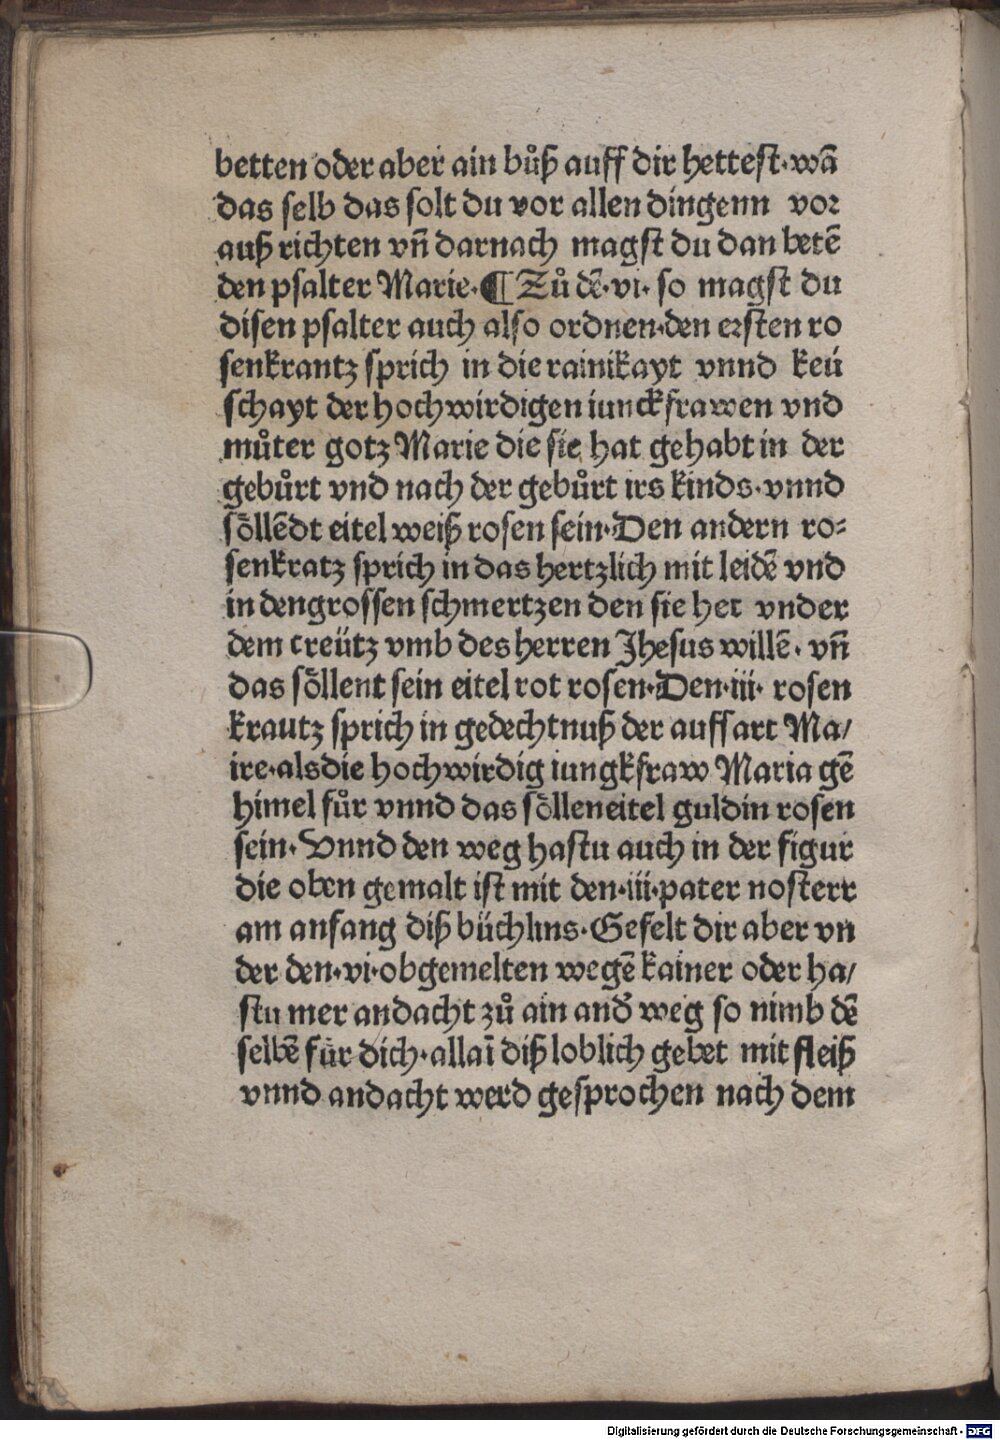 betten oder aber ain bůß auff dir hettest·wã
das selb das solt du vor allen dingenn vor
auß richten vñ darnach magst du dan betẽ
den psalter Marie·¶ Zů dẽ·vi· so magst du
disen psalter auch also ordnen·den ersten ro
senkrantz sprich in die rainikayt vnnd keú
schayt der hochwirdigen iunckfrawen vnd
můter gotz Marie die sie hat gehabt in der
gebůrt vnd nach der gebůrt irs kinds·vnnd
sôllẽdt eitel weiß rosen sein·Den andern ro-
senkratz sprich in das hertzlich mit leidẽ vnd
in dengrossen schmertzen den sie het vnder
dem creütz vmb des herren Jhesus willẽ· vñ
das sôllent sein eitel rot rosen·Den·iii· rosen
krautz sprich in gedechtnuß der auffart Ma/
ire·alsdie hochwirdig iungkfraw Maria gẽ
himel fůr vnnd das sôlleneitel guldin rosen
sein·Vnnd den weg hastu auch in der figur
die oben gemalt ist mit den·iii·pater nosterr
am anfang diß büchlins·Gefelt dir aber vn
der den·vi·obgemelten wegẽ kainer oder ha/
stu mer andacht zů ain and̃ weg so nimb dẽ
selbẽ für dich·allaĩ diß loblich gebet mit fleiß
vnnd andacht werd gesprochen nach dem
Digitalisierung gefördert durch die Deutsche Forschungsgemeinschaft - DFG